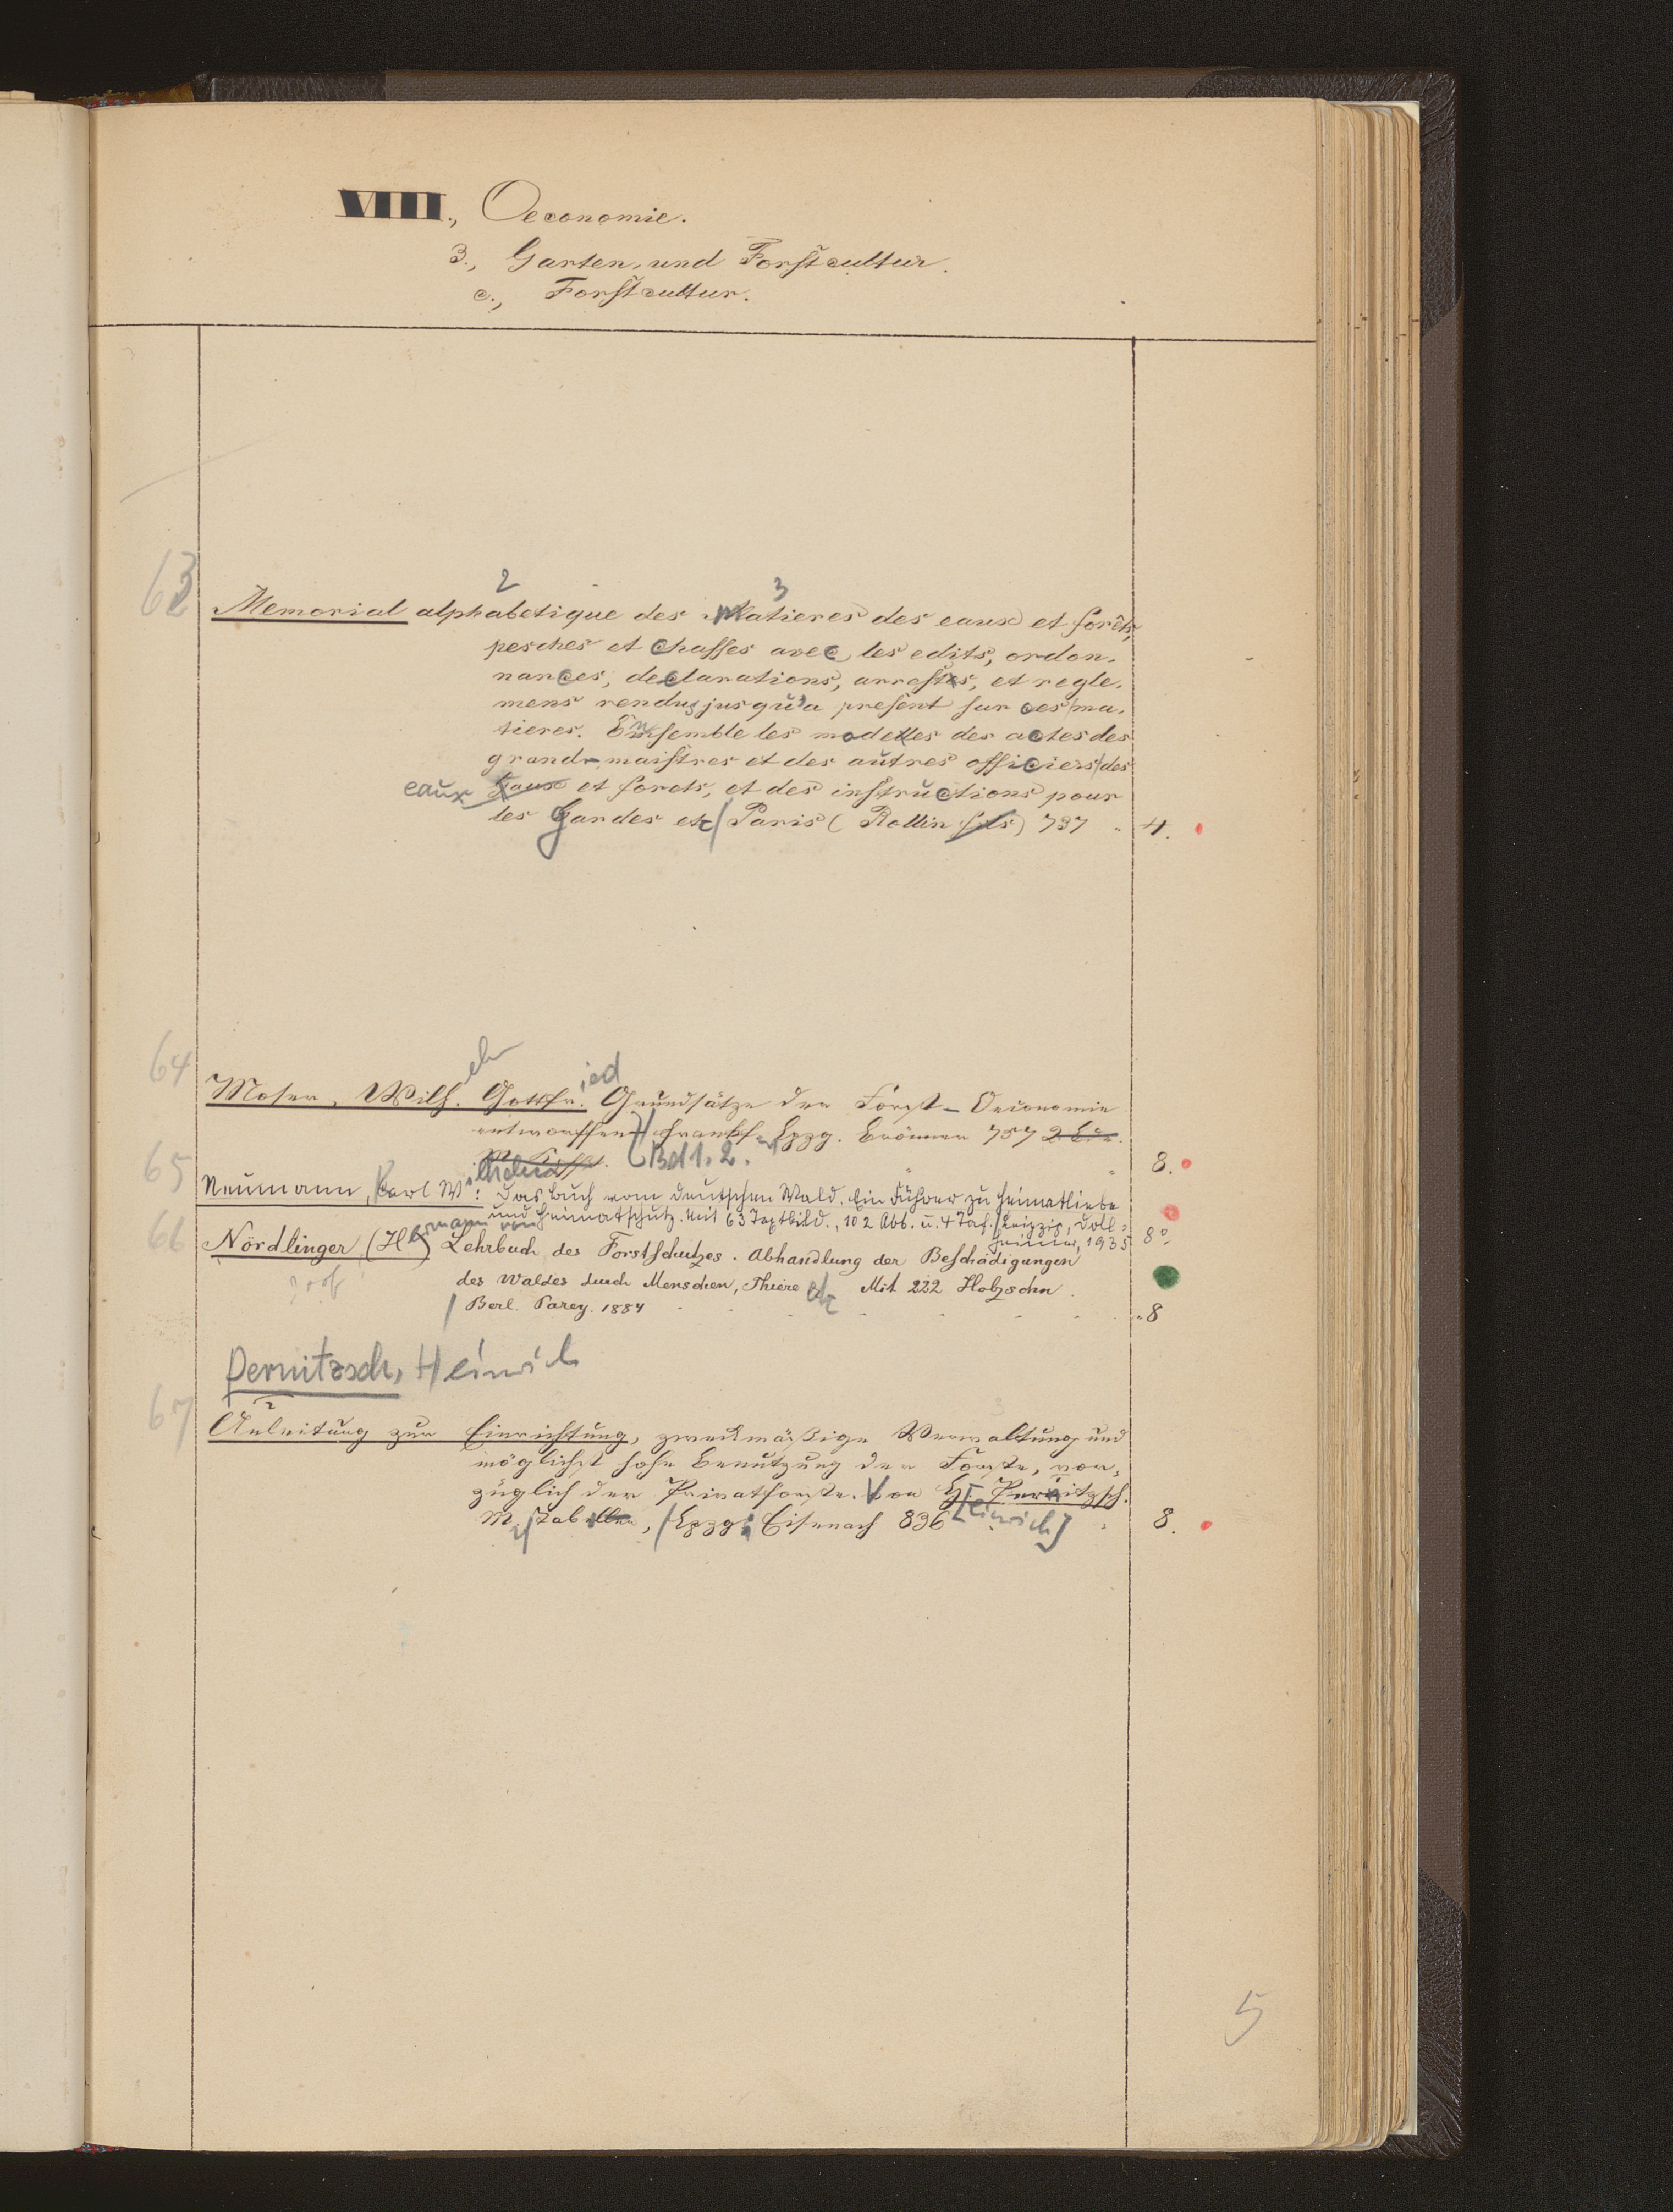 VIIII., Oeconomie.
3., Garten, und Forstcultur.
c., Forstcultur.
2 3
63 Memorial alphabetique des Matieres des eaux et forêts,
pesches et chasses avec les edits, ordon-
nances, declarations, arrests, et regle-
mens rendus jusqu'a present sur ces ma-
tieres. Ensemble les modelles des actes des
grand-maistres et des autres officiers des
eaux Eaux et forets, et des instructions pour
les Gardes etc Paris (Rollin fils) 737 4.
64 Moser, Wilh. Gottfr.ied Grundsätze der Forst-Oeconomie
entworffen Frankf. Lpzg. Brönner 757 2 Bde.
Bd 1. 2. 8.
65 Neumann, Karl Wilhelm: Das Buch vom deutschen Wald. Ein Führer zu Heimatliebe
und Heimatschutz. Mit 63 Textbild., 102 Abb. u. 4 Taf. Leipzig, Doll-
heimer, 1935 8°
66 Nördlinger (Hermann von) Lehrbuch des Forstschutzes. Abhandlung der Beschädigungen
des Waldes durch Menschen, Thiere etc Mit 222 Holzschn.
Berl. Parey. 1884 8
Pernitzsch, Heinrich
2 3
67 Anleitung zur Einrichtung, zweckmäßige Verwaltung und
möglichst hohe Benutzung der Forste, vor-
züglich der Privatforste. Von H. Pernitzsch.
M. Tabellen, Lpzg. Eisenach 836 [Heinrich] 8.
5